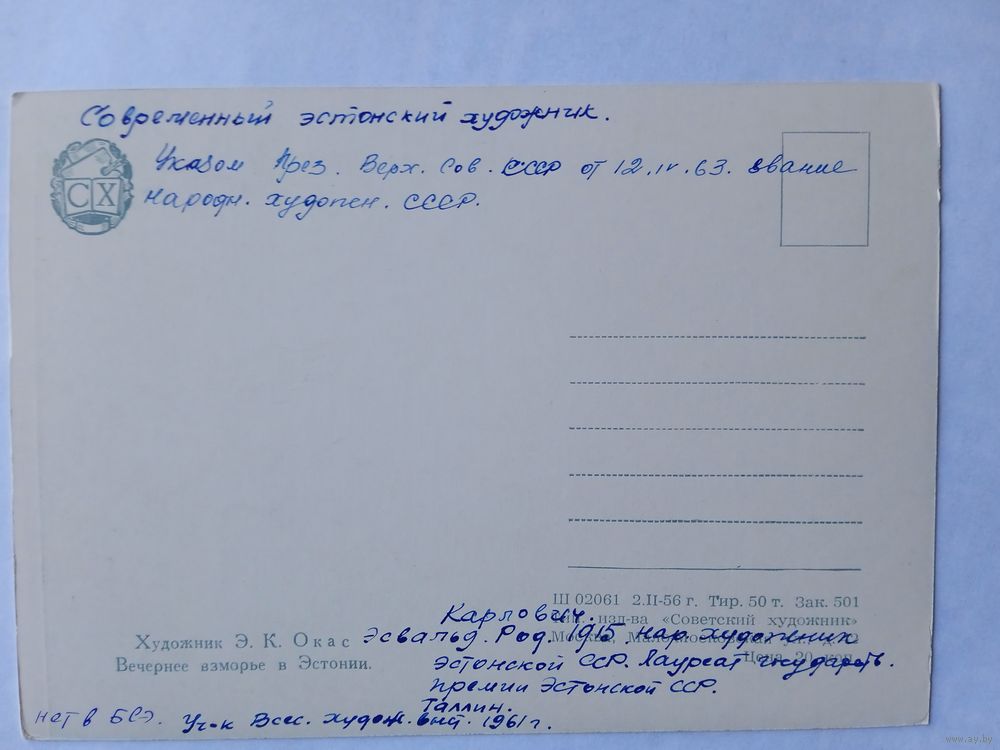 Современный эстонский художник.
Указом През. Верх. Сов. СССР от 12.IV.63. звание
народн. художн. СССР.
СХ
Ш 02061 2.II-56 г. Тир. 50 т. Зак. 501
Карлович.
изд-ва «Советский художник»
Художник Э. К. Окас
Эсвальд. Род. 1915 нар художник
Москва,
Вечернее взморье в Эстонии.
Эстонской ССР. Лауреат государств.
Цена 20 коп.
премии Эстонской ССР.
Таллин.
нет в БСЭ. Уч-к Всес. худож. выст. 1961 г.
www.ay.by